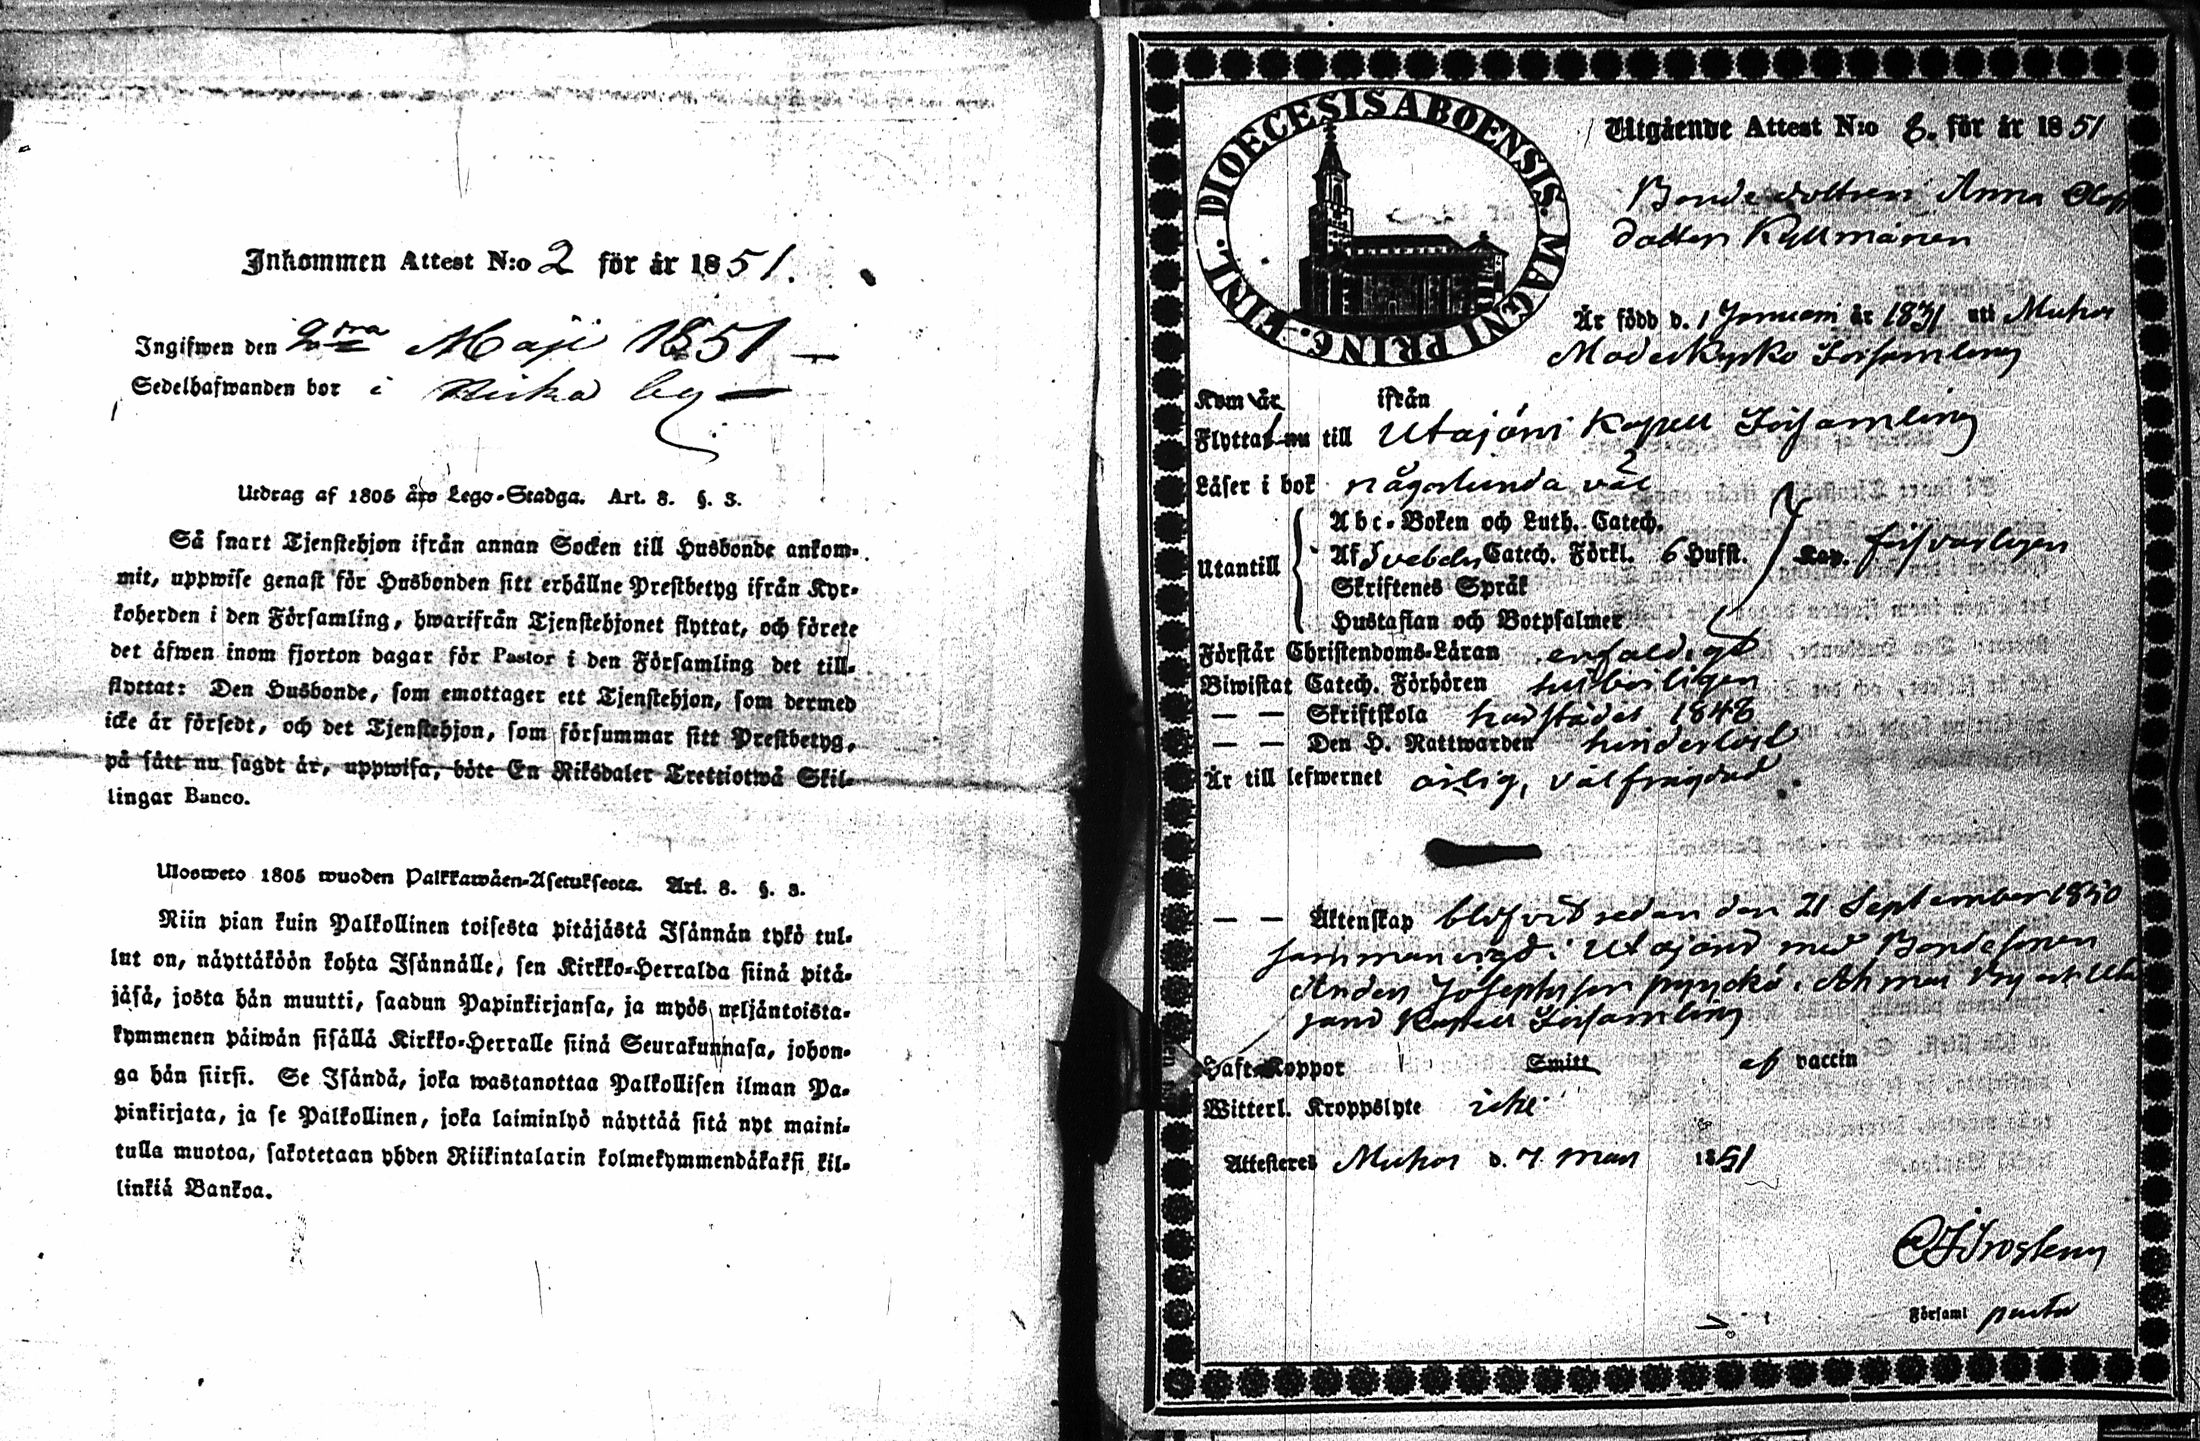 Inkommen Attest N:o 2 för år 1851.
Ingifwen den 2dra Maji 1851 —
Sedelhafwanden bor i by —
Utdrag af 1805 års Lego-Stadga. Art. 8. §. 3.
Så snart Tjenstehjon ifrån annan Socken till Husbonde ankom-
mit, uppwise genast för Husbonden sitt erhållne Prestbetyg ifrån Kyr-
koherden i den Församling, hwarifrån Tjenstehjonet flyttat, och förete
det åfwen inom fjorton dagar för Pastor i den Församling det till-
flyttat: Den Husbonde, som emottager ett Tjenstehjon, som dermed
icke år försedt, och det Tjenstehjon, som försummar sitt Prestbetyg,
på sått nu sagdt år, uppwisa, böte En Riksdaler Trettiotwå Skil-
lingar Banco.
Ulosweto 1805 wuoden Palkkawåen-Asetuksesta. Art. 8. §. 3.
Niin pian kuin Palkollinen toisesta pitåjåstå Isånnån tykö tul-
lut on, nåyttåköön kohta Isånnålle, sen Kirkko-Herralda siinå pitå-
jåså, josta hån muutti, saadun Papinkirjansa, ja myös neljåntoista-
kymmenen påiwån sisållå Kirkko-Herralle siinå Seurakunnasa, johon-
ga hån siirsi. Se Isåndå, joka wastanottaa Palkollisen ilman Pa-
pinkirjata, ja se Palkollinen, joka laiminlyö nåyttåå sitå nyt maini-
tulla muotoa, sakotetaan yhden Riikintalarin kolmekymmendåkaksi kil-
linkiå Bankoa.
DIOECESIS ABOENSIS. MAGNI PRINC. FINL.
Utgående Attest N:o 8. för år 1851
Bondedottren Anna Olofs
dotter Kyllmänen
Är född d. 1 Januari år 1831 uti Muhos
Moderkyrko Församling
Kom år ifrån
Flyttat nu till Utajärvi Kapell Församling
Låser i bok någorlunda väl
Utantill
Abc-Boken och Luth. Catech.
Af Svebelii Catech. Förkl. 6 Hufst. Kap. försvarligen
Skriftenes Språk
Hustaflan och Botpsalmer
Förstår Christendoms-Låran enfaldigt
Biwistat Catech. Förhören tillbörligen
— — Skriftskola 1848
— — Den H. Nattwarden hinderlös
Är till lefwernet ärlig, välfrägdad.
— — Äktenskap blifvit redan den 21 September 1850
sammanvigd i Utajärvi med Bondesonen
Anders Josephsson Pyyckö i Ahmas by
Kapell Församling
Haft Koppor Smitt af vaccin
Witterl. Kroppslyte icke
Attesteres Muhos d. 7 Mars 1851
Församl